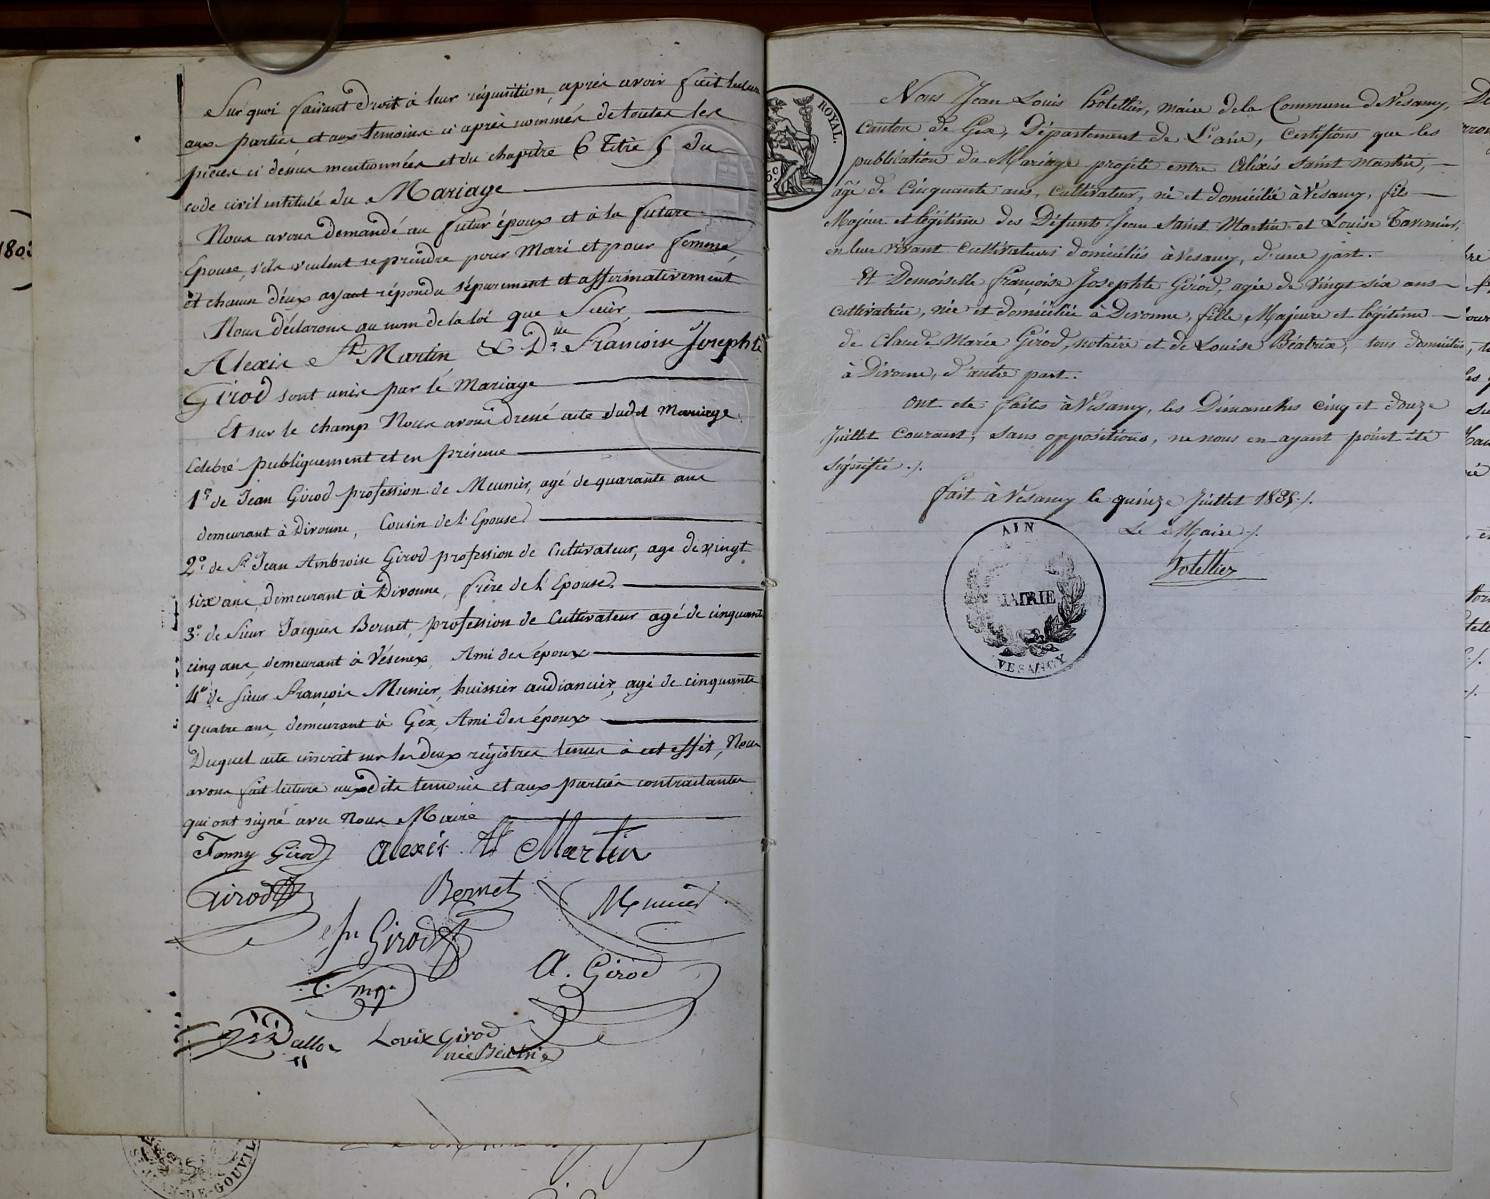 Sur quoi faisant droit à leur réquisition, après avoir fait lecture
aux parties et aux témoins ci après nommés de toutes les
pièces ci dessus mentionnées et du chapitre 6 Titre 5 du
code civil intitulé du Mariage
Nous avons demandé au futur époux et à la future
Epouse, s'ils veulent se prendre pour Mari et pour femme,
et chacun d'eux ayant répondu séparement et affirmativement
Nous déclarons au nom de la loi que Sieur
Alexis St Martin & Dlle Françoise Josephte
Girod sont unis par le Mariage
Et sur le champ Nous avons dressé acte dudit Mariage
Célébré publiquement et en présence
1r de Jean Girod profession de Meunier, agé de quarante ans
demeurant à Divonne, Cousin de l'Epouse
2o de Sr Jean Ambroise Girod profession de Cultivateur, age de vingt
six ans, demeurant à Divonne, frère de l'Epouse
3o de Sieur Jacques Bernet, profession de Cultivateur agé de cinquante
cinq ans, demeurant à Vésenex, Ami des époux
4o de Sieur François Munier, huissier audiancier, agé de cinquante
quatre ans, demeurant à Gex, Ami des époux
Duquel acte inscrit sur les deux régistres tenus à cet effet, Nous
avons fait lecture auxdits temoins et aux parties contractantes
qui ont signé avec Nous Maire
Fanny Girod Alexis St Martin
Girod Bernet Munier
Jn Girod
A. Girod
Louix Girod
née Béatrix
ROYAL.
Nous Jean Louis Potettier, maire de la Commune de Vésancy,
Canton de Gex, Département de L'ain, Certifions que les
publication du Mariage projeté entre Alexis Saint Martin,
âgé de Cinquante ans, Cultivateur, né et domicilié à Vésancy, fils
Majeur et légitime des Défunts Jean Saint Martin et Louise Tavernier,
en leur vivant Cultivateurs domiciliés à Vésancy, d'une part.
Et Demoiselle françoise Josephte Girod, agée de Vingt six ans
Cultivatrice, née et domiciliée à Divonne, fille Majeure et légitime
de Claude Marie Girod, notaire et de Louise Béatrix, tous domiciliés
à Divonne, d'autre part.
Ont été faites à Vésancy, les Dimanches Cinq et douze
Juillet Courant, Sans oppositions, ne nous en ayant point été
Signifié ./.
fait à Vésancy le quinze Juillet 1835 ./.
Le Maire ./.
Potettier
AIN
MAIRIE
VESANCY